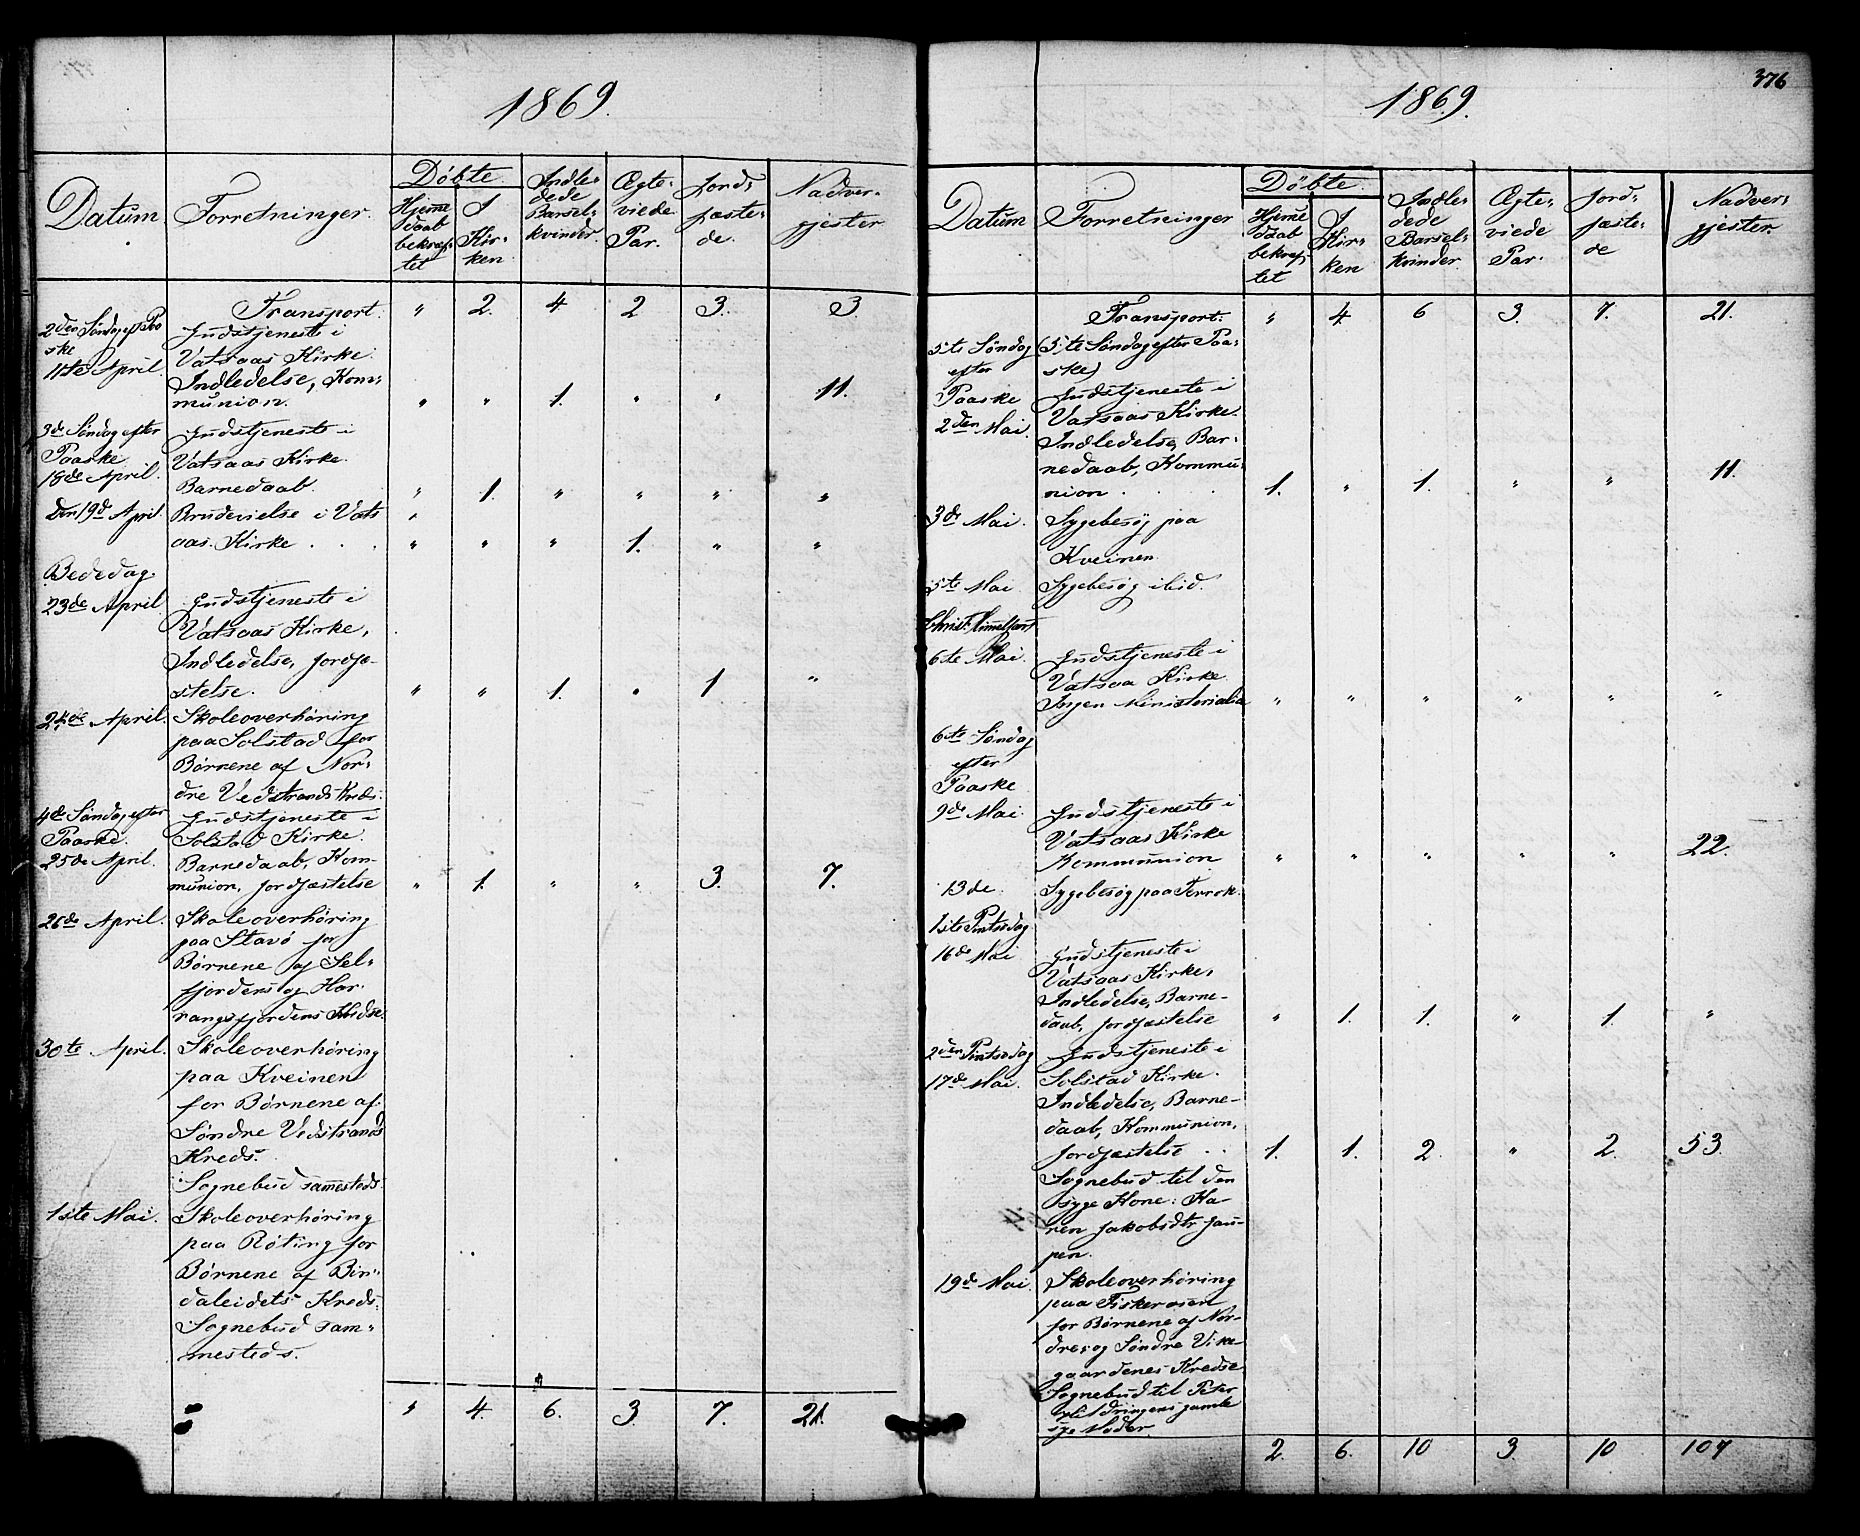 1869.
Datum
Forretninger.
Døbte
Hjemedaab bekræftet
I Kirken
Indledede Barselkvinder.
Ægteviede Par.
Jordfæstede.
Nadvergjester
Transport. " 2. 4. 2 3. 3.
2den Søndag eft. Paa
ske
11te April.
Gudstjeneste i
Vatsaas Kirke.
Indledelse, Kom-
munion. " " 1. " " 11.
3de Søndag efter
Paaske
18de April.
Gudstjeneste i
Vatsaas Kirke.
Barnedaab. " 1. " " " "
Den 19de April.
Brudevielse i Vats
aas Kirke . . . " " " 1. " "
Bededag.
23de April
Gudstjeneste i
Vatsaas Kirke,
Indledelse, Jordfæ-
stelse. " " 1. " 1 "
24de April.
Skoleoverhøring
paa Solstad for
Børnene af Nor-
dre Vedstrands Kreds.
4de Søndag efter
Paaske.
25de April.
Gudstjeneste i
Solstad Kirke.
Barnedaab, Kom-
munion, Jordfæstelse " 1. " " 3. 7.
26de April.
Skoleoverhøring
paa Stavø for
Børnene af Sel-
fjordens og Har-
rangsfjordens Kredse.
30te April.
Skoleoverhøring
paa Kveinen
for Børnene af
Søndre Vedstrands
Kreds.
Sognebud sammesteds.
1ste Mai.
Skoleoverhøring
paa Røting for
Børnene af Bin-
daleidets Kreds.
Sognebud sam-
mesteds.
" 4. 6. 3. 7. 21.
376
1869.
Datum
Forretninger
Døbte.
Hjemedaab bekræftet
I Kirken
Indledede Barselkvinder.
Ægteviede Par.
Jordfæstede
Nadvergjester.
Transport. " 4. 6 3. 7. 21.
5te Søndag
efter
Paaske
2den Mai.
(5te Søndag efter Paa-
ske)
Gudstjeneste i
Vatsaas Kirke.
Indledelse, Bar-
nedaab, Kommu-
nion . . . 1. " 1. " " 11.
3de Mai.
Sygebesøg paa
Kveinen
5te Mai
Sygebesøg ibid.
Christi Himelfart
6te Mai.
Gudstjeneste i
Vatsaa Kirke
Ingen Ministerialia " " " " " "
6te Søndag
efter
Paaske
9de Mai.
Gudstjeneste i
Vatsaas Kirke
Kommunion " " " " " 22.
13de.
Sygebesøg paa Terrok.
1ste Pintsedag
16de Mai
Gudstjeneste i
Vatsaas Kirke,
Indledelse, Barne-
daab, Jordfæstelse " 1. 1. " 1. "
2den Pintsedag
17de Mai.
Gudstjeneste i
Solstad Kirke.
Indledelse, Barne-
daab, Kommunion,
Jordfæstelse . . 1. 1. 2. " 2. 53.
Sognebud til den
syge Kone: Ka-
ren Jakobsdtr
19de Mai.
Skoleoverhøring
paa Fiskerosen
for Børnene af Nor-
dre og Søndre Vike-
gaardenes Kredse
Sognebud til Peter
gamle
syge Moder.
2. 6. 10 3. 10 107